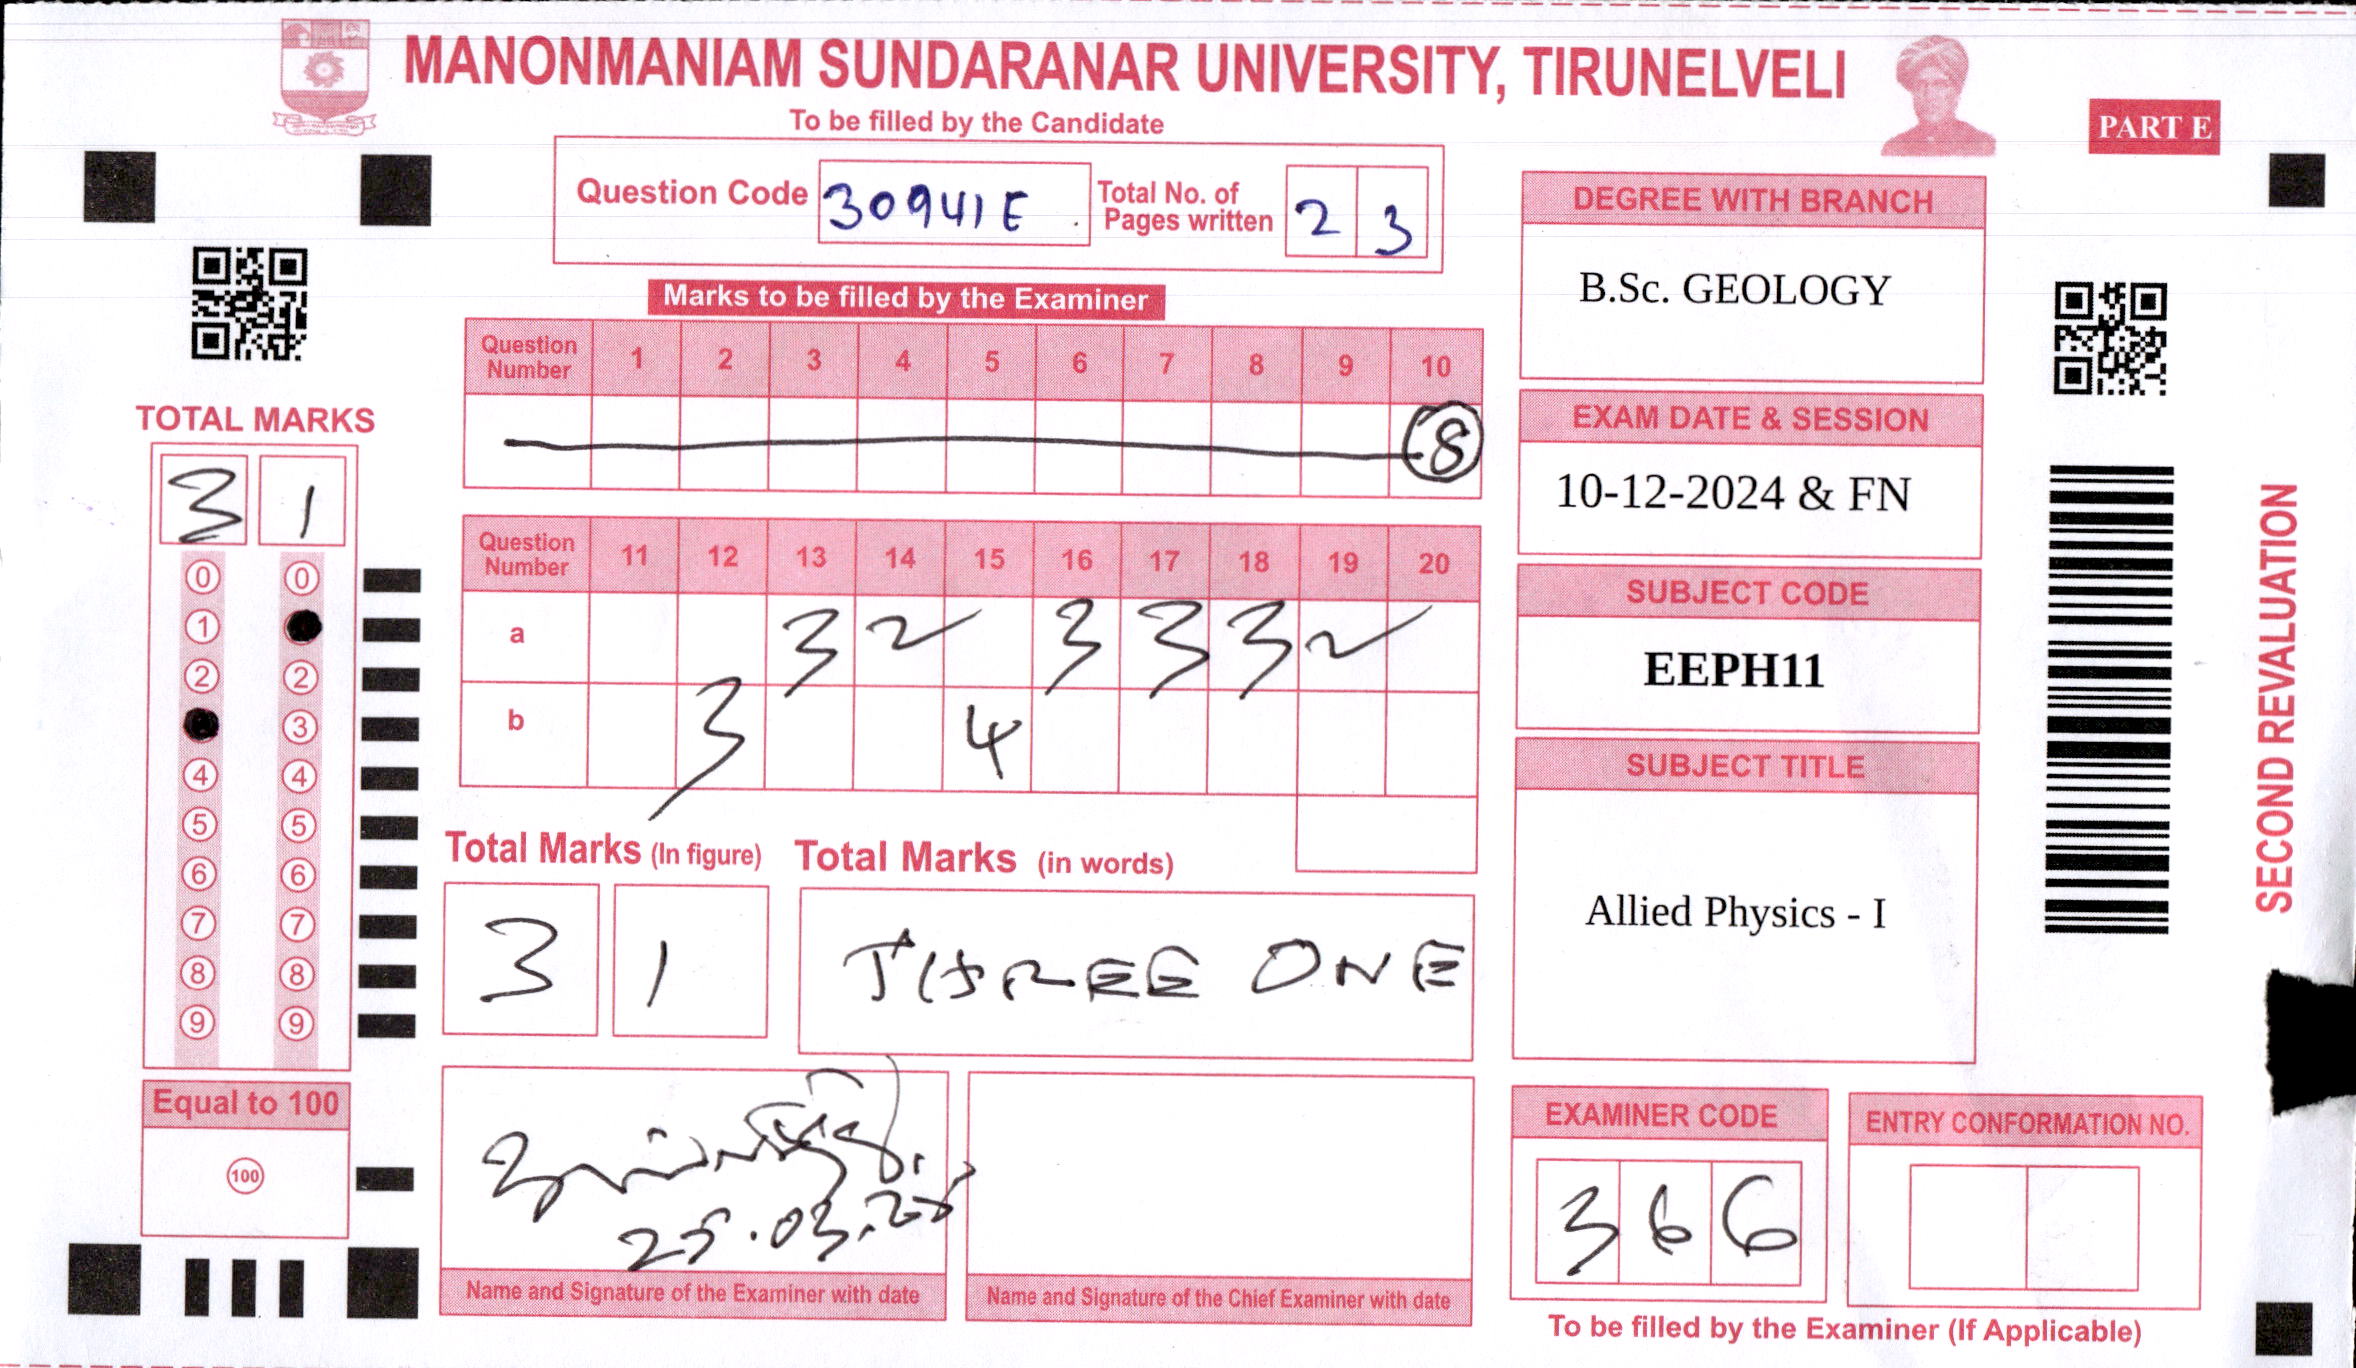 MANONMANIAM SUNDARANAR UNIVERSITY, TIRUNELVELI
To be filled by the Candidate
PART E
Question Code 30941E Total No. of Pages written 2 3
Marks to be filled by the Examiner
Question Number 1 2 3 4 5 6 7 8 9 10
8
Question Number 11 12 13 14 15 16 17 18 19 20
a 3 2 3 3 3 2
b 3 4
Total Marks (In figure) Total Marks (in words)
3 1 THREE ONE
25.03.25
Name and Signature of the Examiner with date
Name and Signature of the Chief Examiner with date
TOTAL MARKS
3 1
0 0
1
2 2
3
4 4
5 5
6 6
7 7
8 8
9 9
Equal to 100
100
DEGREE WITH BRANCH
B.Sc. GEOLOGY
EXAM DATE & SESSION
10-12-2024 & FN
SUBJECT CODE
EEPH11
SUBJECT TITLE
Allied Physics - I
EXAMINER CODE
3 6 6
ENTRY CONFORMATION NO.
To be filled by the Examiner (If Applicable)
SECOND REVALUATION